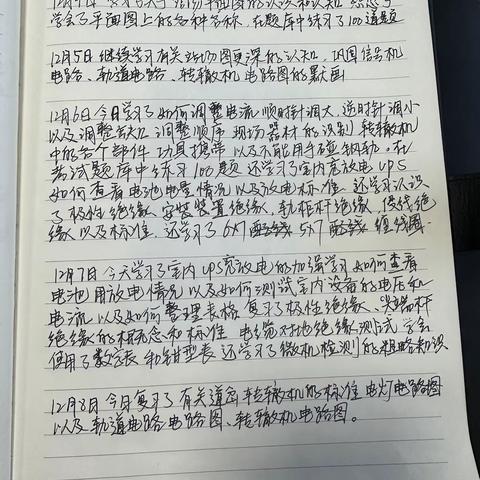 学会了平面图上的各种名称，在题库中练习了100道题
12月5日继续学习有关站场图更深的认知，巩固信号机
电路、轨道电路、转辙机电路图的默画
12月6日今日学习了如何调整电流顺时针调大，逆时针调小
以及调整缺口调整顺序现场器材的识别转辙机
中的各个部件功具携带以及不能用手碰钢轨.在
考试题库中练习100题还学习了室内充放电UPS
如何查看电池电压情况以及放电标准还学习认识
了极性绝缘、安装装置绝缘、轨距杆绝缘、侵线绝
缘以及标准.还学习了6X7 5X7 缠线圈.
12月7日今天学习了室内UPS充放电的加强学习如何查看
电池用放电情况以及如何测试室内设备的电压和
电流以及如何整理表格复习了极性绝缘、尖端杆
绝缘的概念和标准电缆对地绝缘测试学会
使用了数字表和钳型表还学习了微机检测的粗略知识
12月8日今日复习了有关道岔转辙机的标准电灯电路图
以及轨道电路电路图、转辙机电路图。